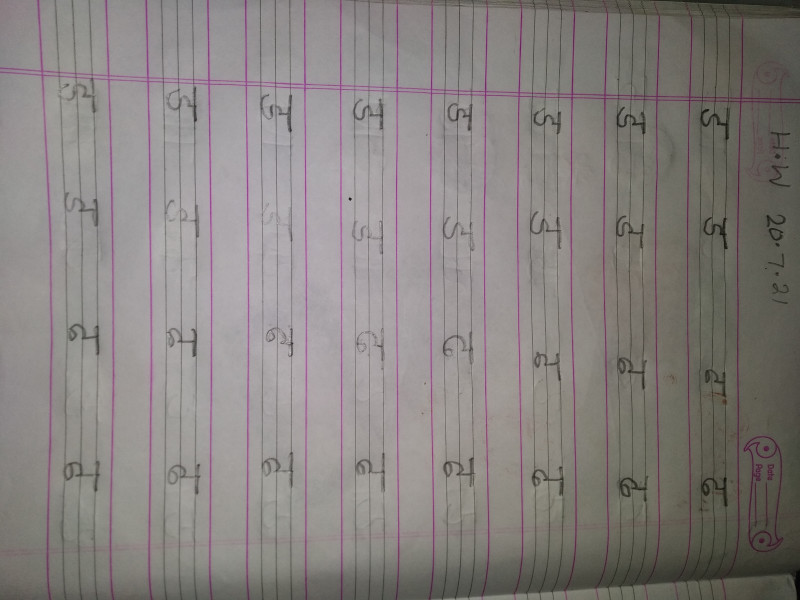 H.W 20.7.21
Date
Page
ड ड ढ ढ
ड ड ढ ढ
ड ड ढ ढ
ड ड ढ ढ
ड ड ढ ढ
ड ड ढ ढ
ड ड ढ ढ
ड ड ढ ढ